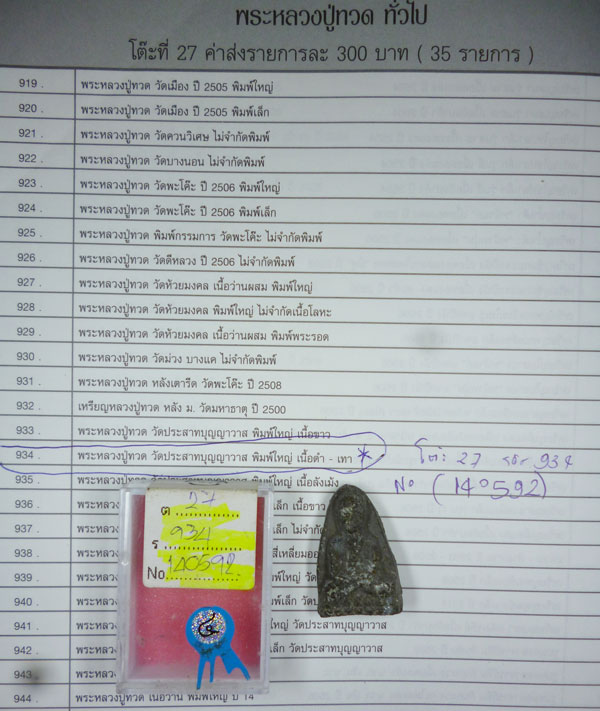 พระหลวงปู่ทวด ทั่วไป
โต๊ะที่ 27 ค่าส่งรายการละ 300 บาท ( 35 รายการ )
919 . พระหลวงปู่ทวด วัดเมือง ปี 2505 พิมพ์ใหญ่
920 . พระหลวงปู่ทวด วัดเมือง ปี 2505 พิมพ์เล็ก
921 . พระหลวงปู่ทวด วัดควนวิเศษ ไม่จำกัดพิมพ์
922 . พระหลวงปู่ทวด วัดบางนอน ไม่จำกัดพิมพ์
923 . พระหลวงปู่ทวด วัดพะโค๊ะ ปี 2506 พิมพ์ใหญ่
924 . พระหลวงปู่ทวด วัดพะโค๊ะ ปี 2506 พิมพ์เล็ก
925 . พระหลวงปู่ทวด พิมพ์กรรมการ วัดพะโค๊ะ ไม่จำกัดพิมพ์
926 . พระหลวงปู่ทวด วัดดีหลวง ปี 2506 ไม่จำกัดพิมพ์
927 . พระหลวงปู่ทวด วัดห้วยมงคล เนื้อว่านผสม พิมพ์ใหญ่
928 . พระหลวงปู่ทวด วัดห้วยมงคล พิมพ์ใหญ่ ไม่จำกัดเนื้อโลหะ
929 . พระหลวงปู่ทวด วัดห้วยมงคล เนื้อว่านผสม พิมพ์พระรอด
930 . พระหลวงปู่ทวด วัดม่วง บางแค ไม่จำกัดพิมพ์
931 . พระหลวงปู่ทวด หลังเตารีด วัดพะโค๊ะ ปี 2508
932 . เหรียญหลวงปู่ทวด หลัง ม. วัดมหาธาตุ ปี 2500
933 . พระหลวงปู่ทวด วัดประสาทบุญญาวาส พิมพ์ใหญ่ เนื้อขาว
934 . พระหลวงปู่ทวด วัดประสาทบุญญาวาส พิมพ์ใหญ่ เนื้อดำ - เทา *
โต๊ะ 27 934
935 . พระหลวงปู่ทวด วัดประสาทบุญญาวาส พิมพ์ใหญ่ เนื้อลังเม้ง
No (140592)
936 . เล็ก เนื้อขาว
937 . เล็ก ไม่จำกั
938 . สี่เหลี่ยม
939 . พิมพ์ใหญ่ วัด
940 . พิมพ์เล็ก
941 . ใหญ่ วัดประสาทบุญญาวาส
942 . เล็ก วัดประสาทบุญญาวาส
943 .
944 . พระหลวงปู่ทวด เนื้อว่าน พิมพ์ใหญ่ ปี 14
ต 27
ร 934
No 140592
๕